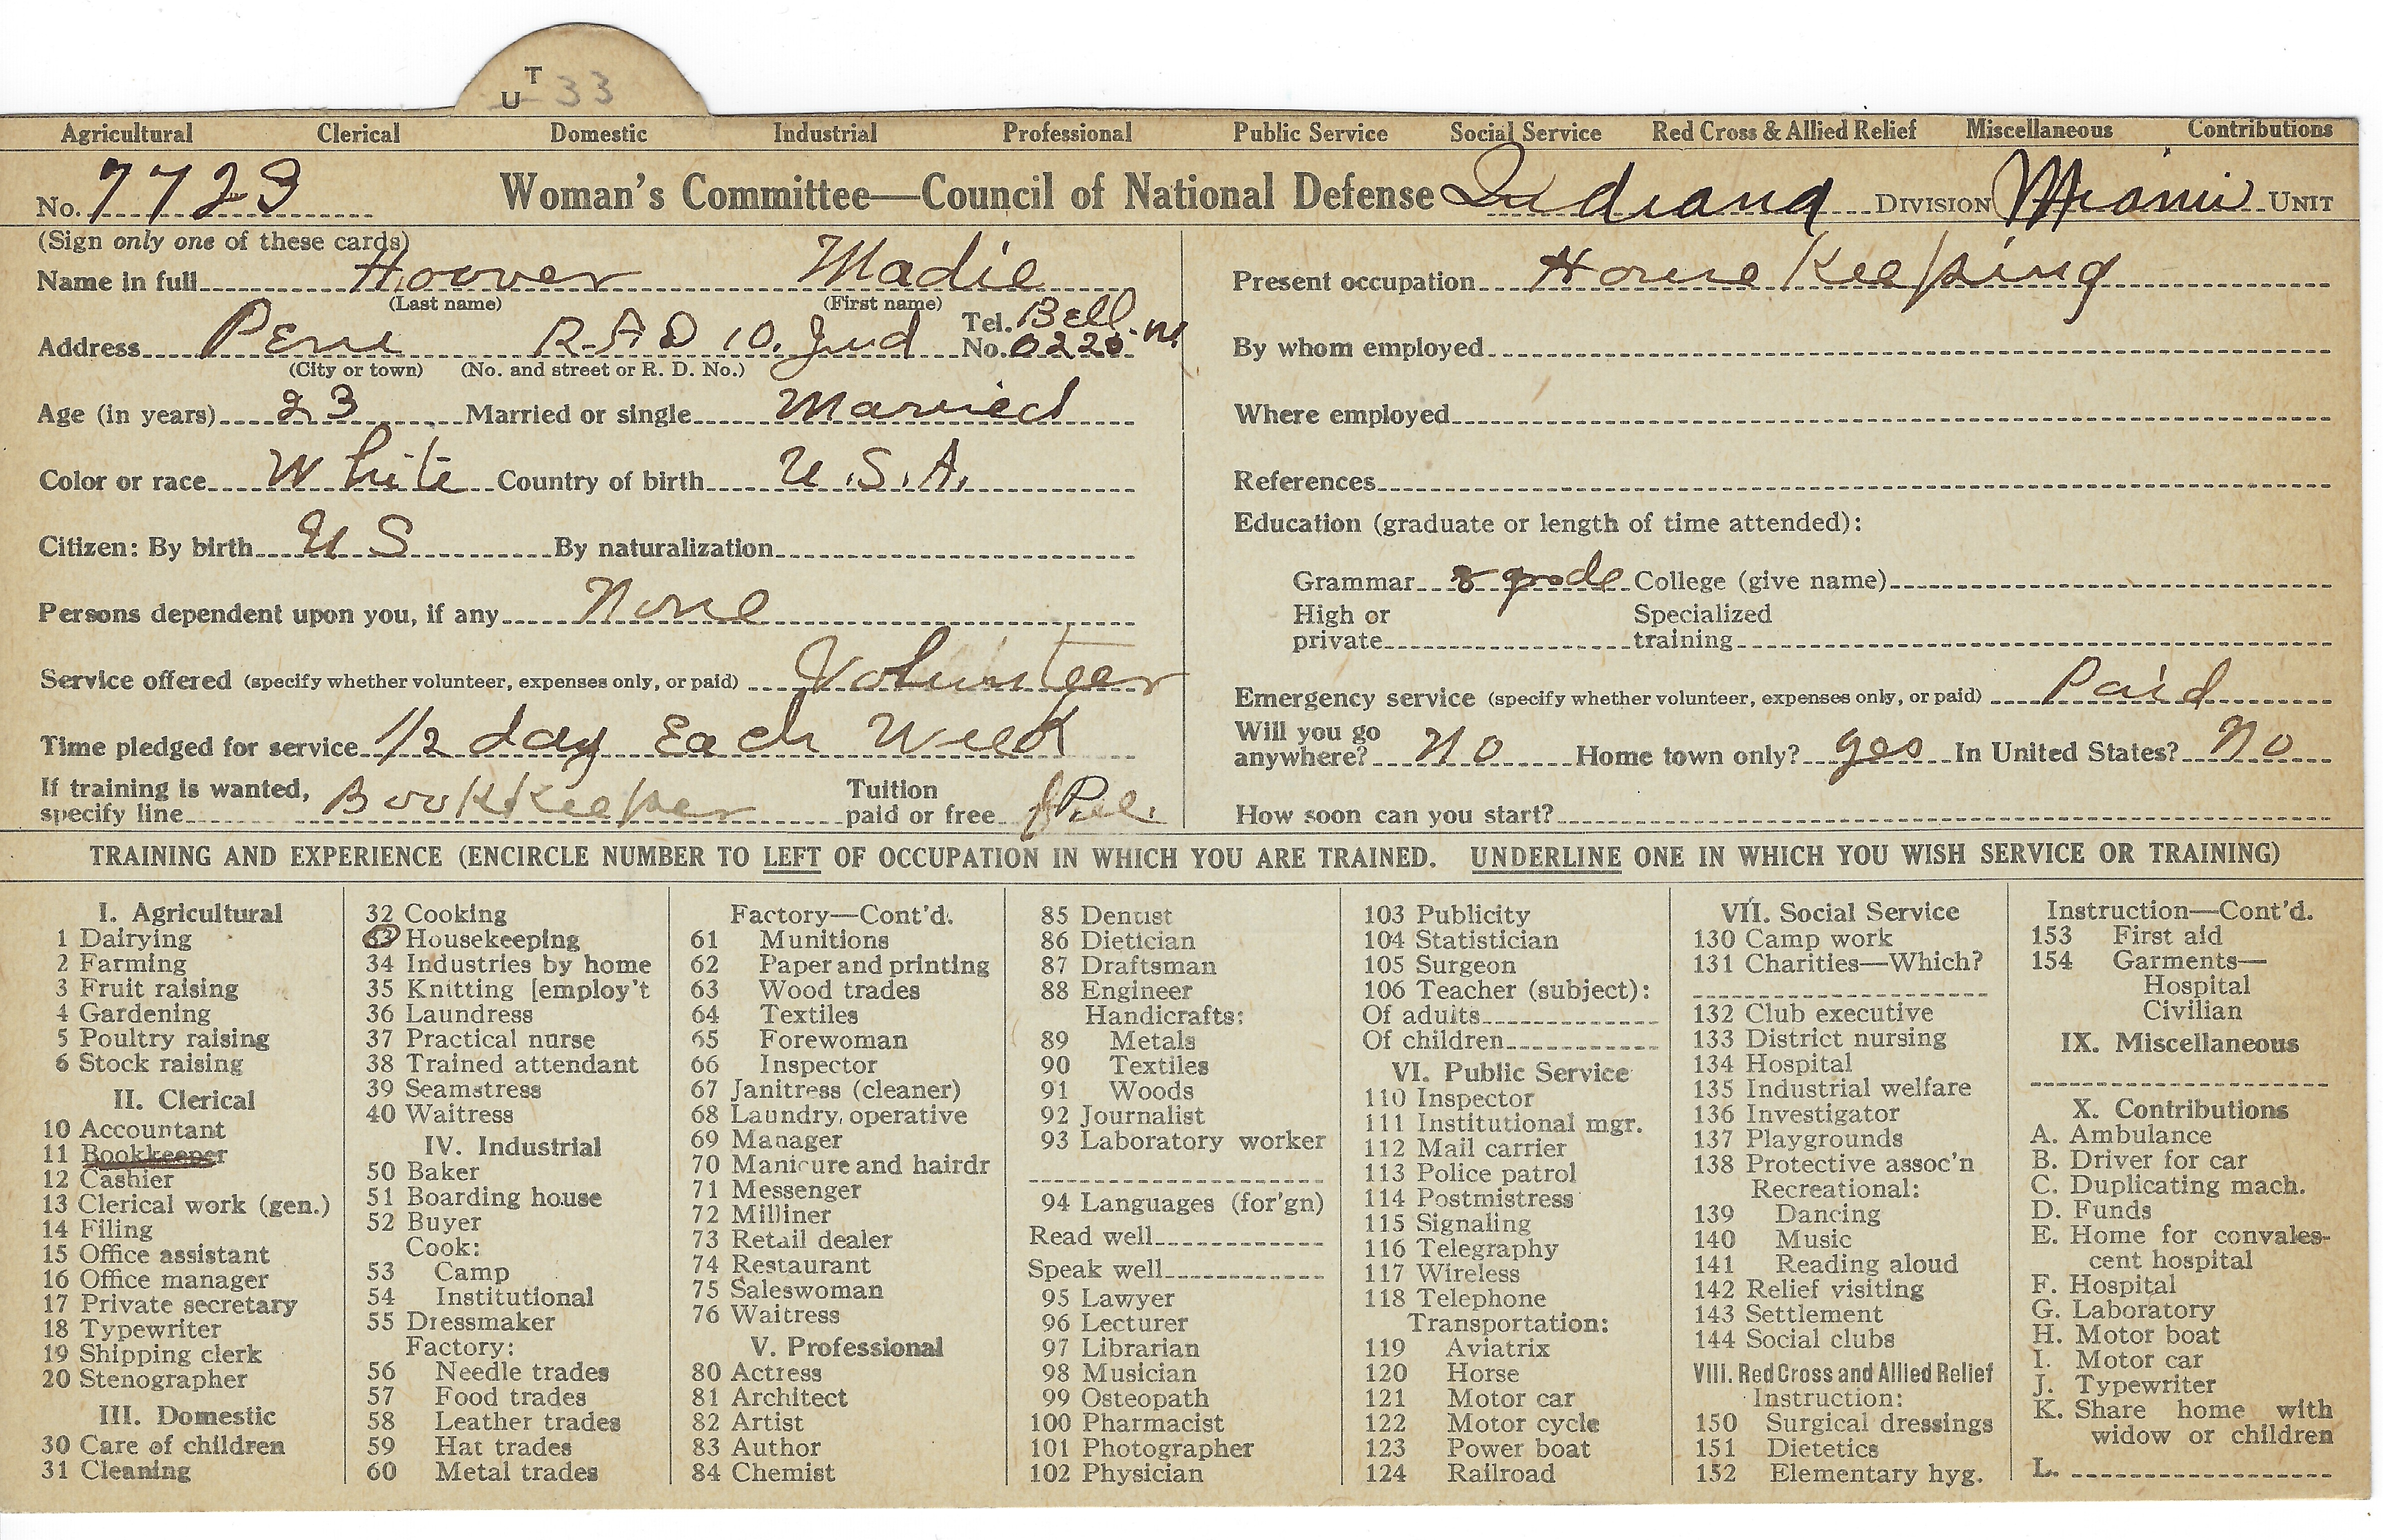 T
U 33
Agricultural Clerical Domestic Industrial Professional Public Service Social Service Red Cross & Allied Relief Miscellaneous Contributions
No. 7723 Woman's Committee—Council of National Defense Indiana DIVISION Miami UNIT
(Sign only one of these cards)
Name in full Hoover Madie
(Last name) (First name)
Address Peru R.F.D 10. Ind Tel. No. Bell 0220
(City or town) (No. and street or R. D. No.)
Age (in years) 23 Married or single Married
Color or race White Country of birth U.S.A.
Citizen: By birth U S By naturalization
Persons dependent upon you, if any None
Service offered (specify whether volunteer, expenses only, or paid) Volunteer
Time pledged for service 1/2 day Each Week
If training is wanted, specify line Bookkeeper Tuition paid or free free.
Present occupation House Keeping
By whom employed
Where employed
References
Education (graduate or length of time attended):
Grammar 8 grade College (give name)
High or private Specialized training
Emergency service (specify whether volunteer, expenses only, or paid) Paid
Will you go anywhere? No Home town only? yes In United States? No
How soon can you start?
TRAINING AND EXPERIENCE (ENCIRCLE NUMBER TO LEFT OF OCCUPATION IN WHICH YOU ARE TRAINED. UNDERLINE ONE IN WHICH YOU WISH SERVICE OR TRAINING)
I. Agricultural
1 Dairying
2 Farming
3 Fruit raising
4 Gardening
5 Poultry raising
6 Stock raising
II. Clerical
10 Accountant
11 Bookkeeper
12 Cashier
13 Clerical work (gen.)
14 Filing
15 Office assistant
16 Office manager
17 Private secretary
18 Typewriter
19 Shipping clerk
20 Stenographer
III. Domestic
30 Care of children
31 Cleaning
32 Cooking
33 Housekeeping
34 Industries by home
35 Knitting [employ't
36 Laundress
37 Practical nurse
38 Trained attendant
39 Seamstress
40 Waitress
IV. Industrial
50 Baker
51 Boarding house
52 Buyer
Cook:
53 Camp
54 Institutional
55 Dressmaker
Factory:
56 Needle trades
57 Food trades
58 Leather trades
59 Hat trades
60 Metal trades
Factory—Cont'd.
61 Munitions
62 Paper and printing
63 Wood trades
64 Textiles
65 Forewoman
66 Inspector
67 Janitress (cleaner)
68 Laundry, operative
69 Manager
70 Manicure and hairdr
71 Messenger
72 Milliner
73 Retail dealer
74 Restaurant
75 Saleswoman
76 Waitress
V. Professional
80 Actress
81 Architect
82 Artist
83 Author
84 Chemist
85 Dentist
86 Dietician
87 Draftsman
88 Engineer
Handicrafts:
89 Metals
90 Textiles
91 Woods
92 Journalist
93 Laboratory worker
94 Languages (for'gn)
Read well
Speak well
95 Lawyer
96 Lecturer
97 Librarian
98 Musician
99 Osteopath
100 Pharmacist
101 Photographer
102 Physician
103 Publicity
104 Statistician
105 Surgeon
106 Teacher (subject):
Of adults
Of children
VI. Public Service
110 Inspector
111 Institutional mgr.
112 Mail carrier
113 Police patrol
114 Postmistress
115 Signaling
116 Telegraphy
117 Wireless
118 Telephone
Transportation:
119 Aviatrix
120 Horse
121 Motor car
122 Motor cycle
123 Power boat
124 Railroad
VII. Social Service
130 Camp work
131 Charities—Which?
132 Club executive
133 District nursing
134 Hospital
135 Industrial welfare
136 Investigator
137 Playgrounds
138 Protective assoc'n
Recreational:
139 Dancing
140 Music
141 Reading aloud
142 Relief visiting
143 Settlement
144 Social clubs
VIII. Red Cross and Allied Relief
Instruction:
150 Surgical dressings
151 Dietetics
152 Elementary hyg.
Instruction—Cont'd.
153 First aid
154 Garments—
Hospital
Civilian
IX. Miscellaneous
X. Contributions
A. Ambulance
B. Driver for car
C. Duplicating mach.
D. Funds
E. Home for convales-
cent hospital
F. Hospital
G. Laboratory
H. Motor boat
I. Motor car
J. Typewriter
K. Share home with
widow or children
L.